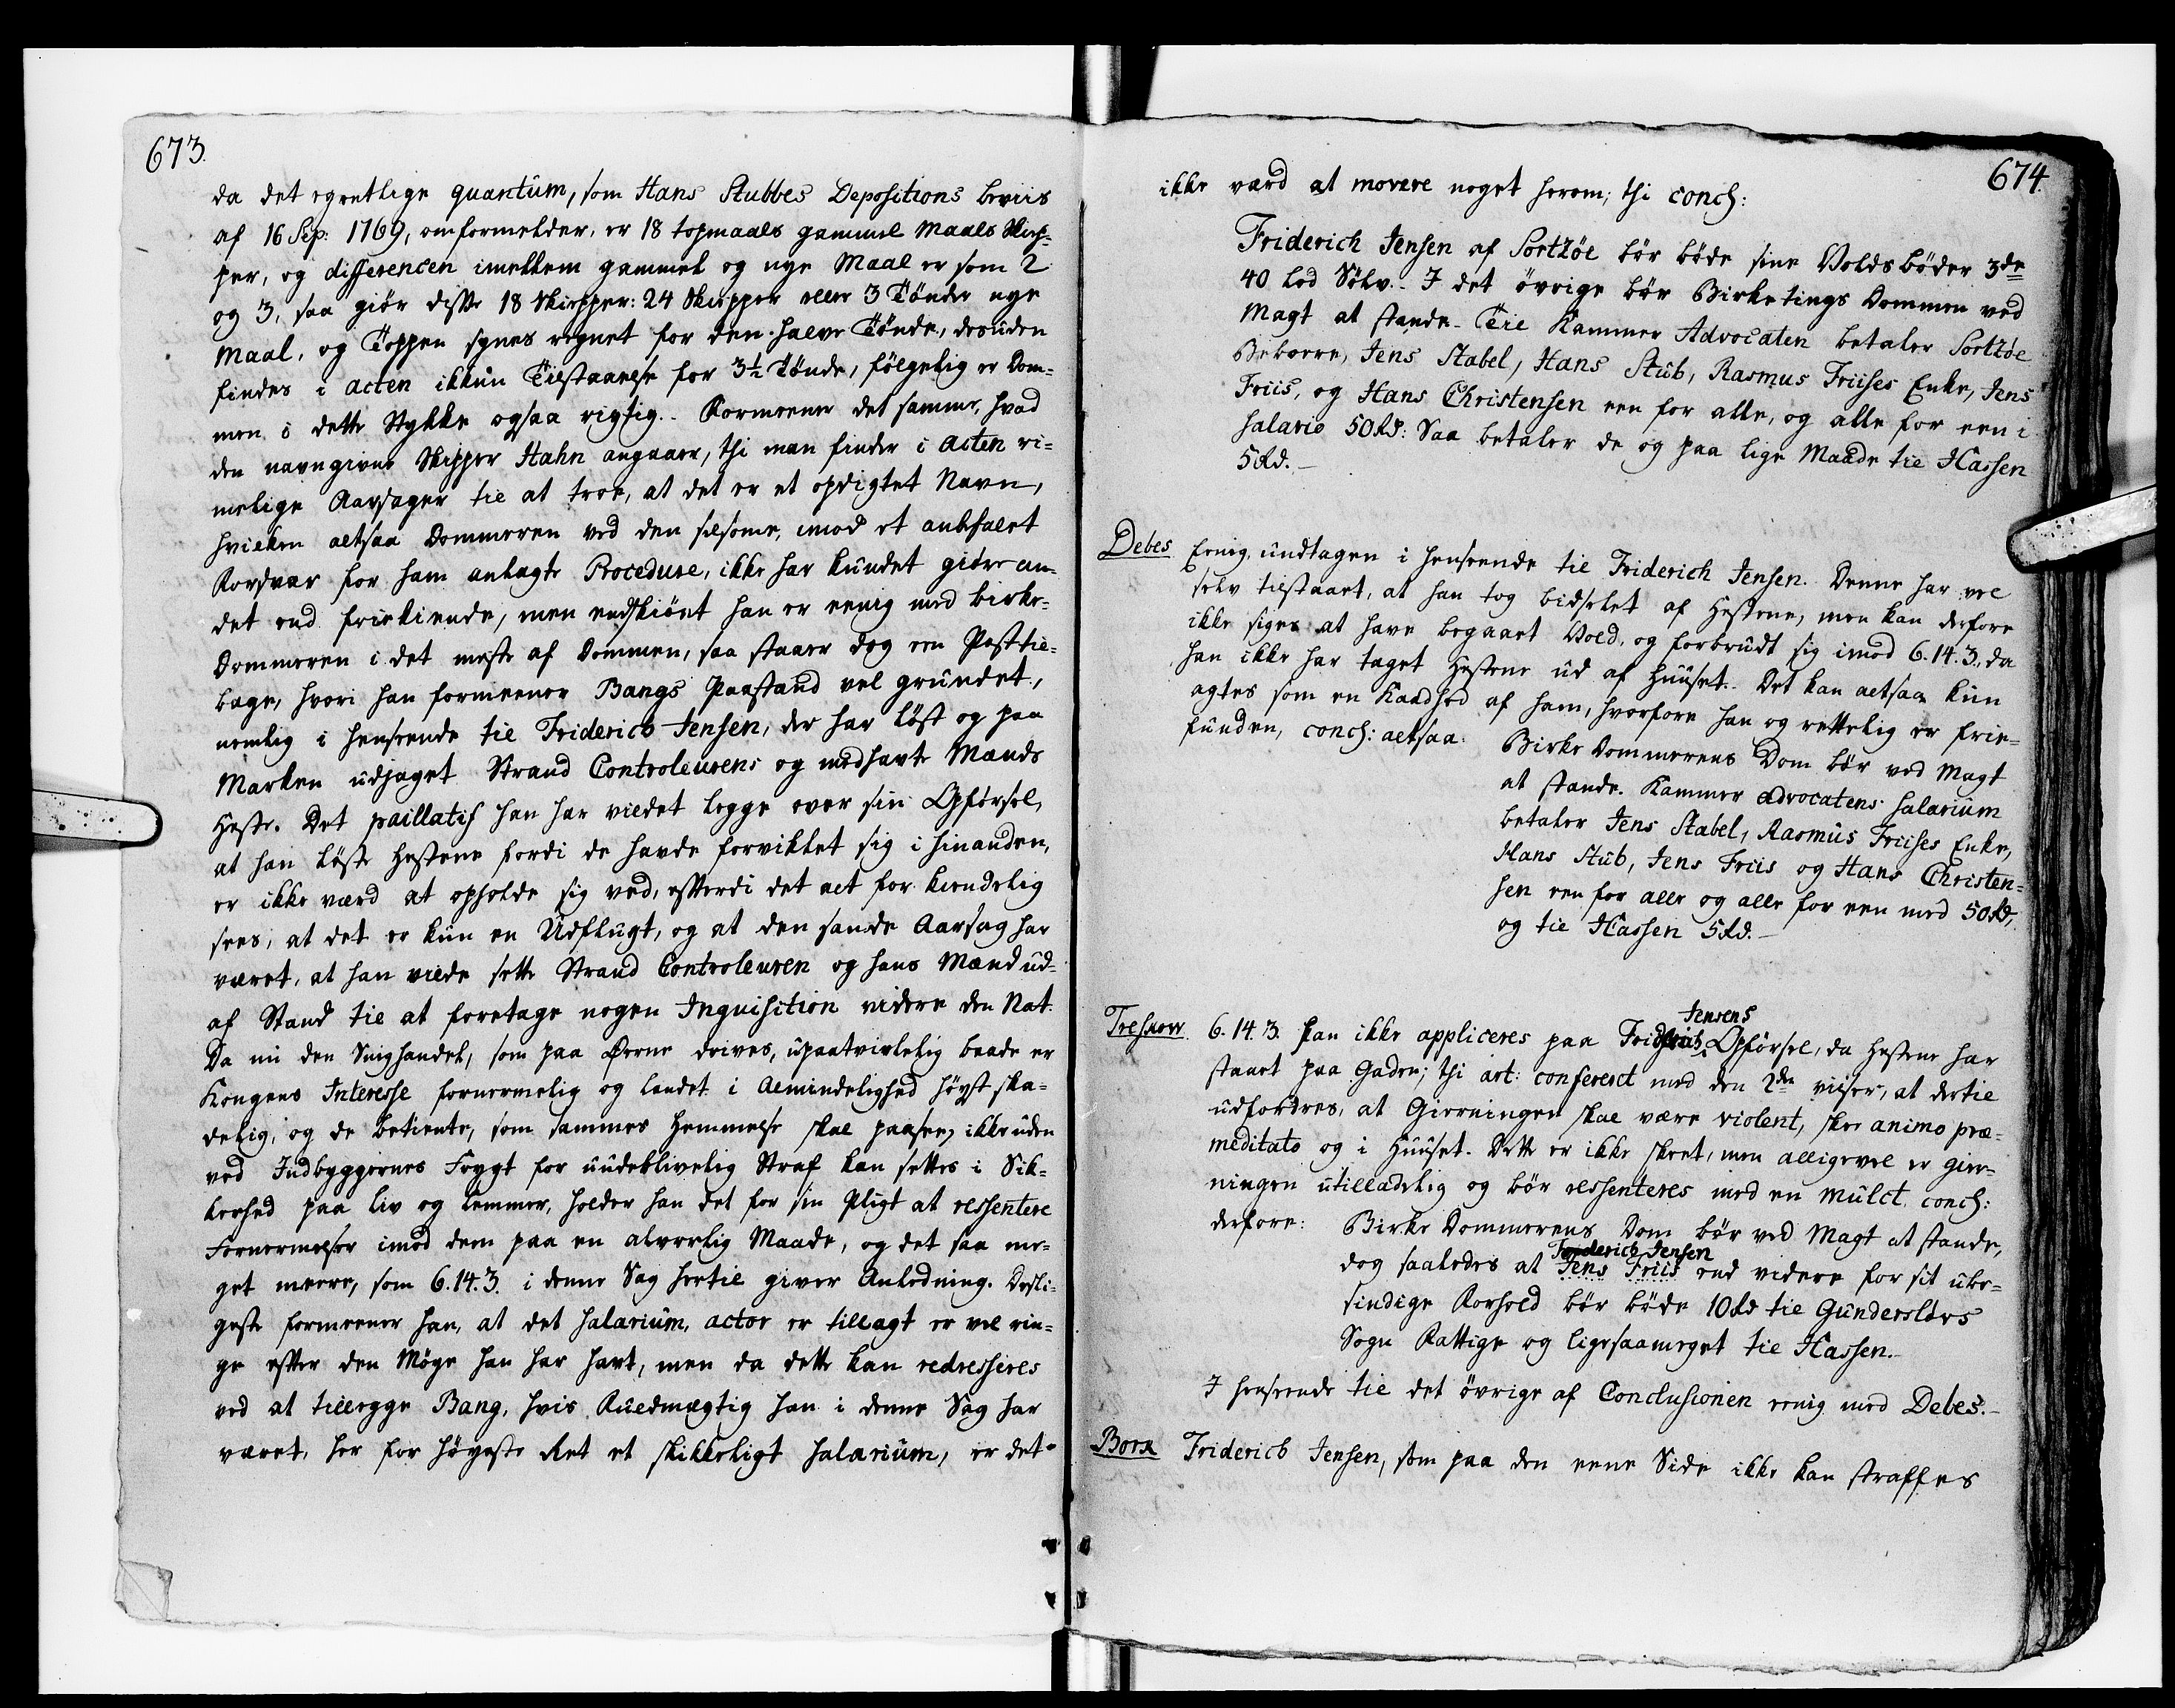 673.
da det egentlige quantum, som Hans Stubbes Depositions beviis
af 16 Sep: 1769, omformelder, er 18 topmaals gammel Maals Skiep-
per, og differencen imellem gammel og nye Maal er som 2
og 3, saa giör disse 18 Skiepper: 24 Skiepper eller 3 Tönder nye
Maal, og Toppen synes regnet for den halve Tönde, desuden
findes i acten ikkun Tilstaaelse for 3½ Tönde, fölgelig er Dom-
men i dette Stykke ogsaa rigtig. Formeener det samme, hvad
den navngivne Skipper Hahn angaaer, thi man finder i acten ri-
melige Aarsager til at troe, at det er et opdigtet Navn,
hvilken altsaa Dommeren ved den selsome, imod et anbefalet
Forsvar for ham anlagte Procedure, ikke har kundet giöre an-
det end frikiende, men endskiönt han er eenig med birke-
Dommeren i det meste af Dommen, saa staaer dog een Post til-
bage, hvori han formeener Bangs Paastand vel grundet,
nemlig i henseende til Friderich Jensen, der har löst og paa
Marken udjaget Strand Controleurens og medhavte Mænds
Heste. Det paillatif han har villet legge over sin Opförsel,
at han löste Hestene fordi de havde forviklet sig i hinanden,
er ikke værd at opholde sig ved, efterdi det alt for kiendelig
sees, at det er kun en Udflugt, og at den sande Aarsag har
været, at han vilde sette Strand Controleuren og hans Mænd ud-
af Stand til at foretage nogen Inquisition videre den Nat.
Da nu den Snighandel, som paa Öerne drives, upaatvivlelig baade er
Kongens Interesse fornermelig og landet i Almindelighed höyst ska-
delig, og de betiente, som sammes Hemmelse skal paasee, ikke uden
ved Indbyggernes Frygt for uudeblivelig Straf kan settes i Sik-
kerhed paa liv og lemmer, holder han det for sin Pligt at ressentere
Fornermelser imod dem paa en alvorlig Maade, og det saa me-
get meere, som 6.14.3. i denne Sag hertil giver Anledning. Desli-
geste formeener han, at det Salarium, actor er tillagt er vel rin-
ge efter den Möye han har havt, men da dette kan redresseres
ved at tillegge Bang, hvis Fuldmægtig han i denne Sag har
været, her for höyeste Ret et skikkeligt Salarium, er det
674.
ikke værd at movere noget herom; thi conch:
Friderich Jensen af Sortzöe bör böde sine Voldsböder 3de
40 Lod Sölv. I det övrige bör Birketings Dommen ved
Magt at stande. Til Kammer Advocaten betaler Sortzöe
Beboere, Jens Stabel, Hans Stub, Rasmus Friises Enke, Jens
Friis, og Hans Christensen een for alle, og alle for een i
Salario 50 Rd: Saa betaler de og paa lige Maade til Kassen
5 Rd.
Debes Eenig, undtagen i henseende til Friderich Jensen. Denne har vel
selv tilstaaet, at han tog bidselet af Hestene, men kan derfore
ikke siges at have begaaet Vold, og forbrudt sig imod 6.14.3., da
han ikke har taget Hestene ud af Huuset. Det kan altsaa kun
agtes som en Kaadhed af ham, hvorfore han og rettelig er frie-
funden, conch: altsaa: Birke Dommerens Dom bör ved Magt
at stande. Kammer advocatens Salarium
betaler Jens Stabel, Rasmus Friises Enke,
Hans Stub, Jens Friis og Hans Christen-
sen een for alle og alle for een med 50 Rd,
og til Kassen 5 Rd.
Jensens
Treschow 6.14.3. kan ikke appliceres paa Fridrich Opförsel, da Hestene har
staaet paa Gaden; thi art: confereret med den 2den viiser, at dertil
udfordres, at Gierningen skal være violent, skee animo præ-
meditato og i Huuset. Dette er ikke skeet, men alligevel er gier-
ningen utilladelig og bör ressenteres med en mulct. conch:
derfore: Birke Dommerens Dom bör ved Magt at stande,
Friderich Jensen
dog saaledes at Jens Friis end videre for sit ube-
sindige Forhold bör böde 10 Rd til Gunderslövs
Sogn Fattige og ligesaameget til Kassen.
I henseende til det övrige af Conclusionen eenig med Debes.
Borx Friderich Jensen, som paa den eene Side ikke kan straffes